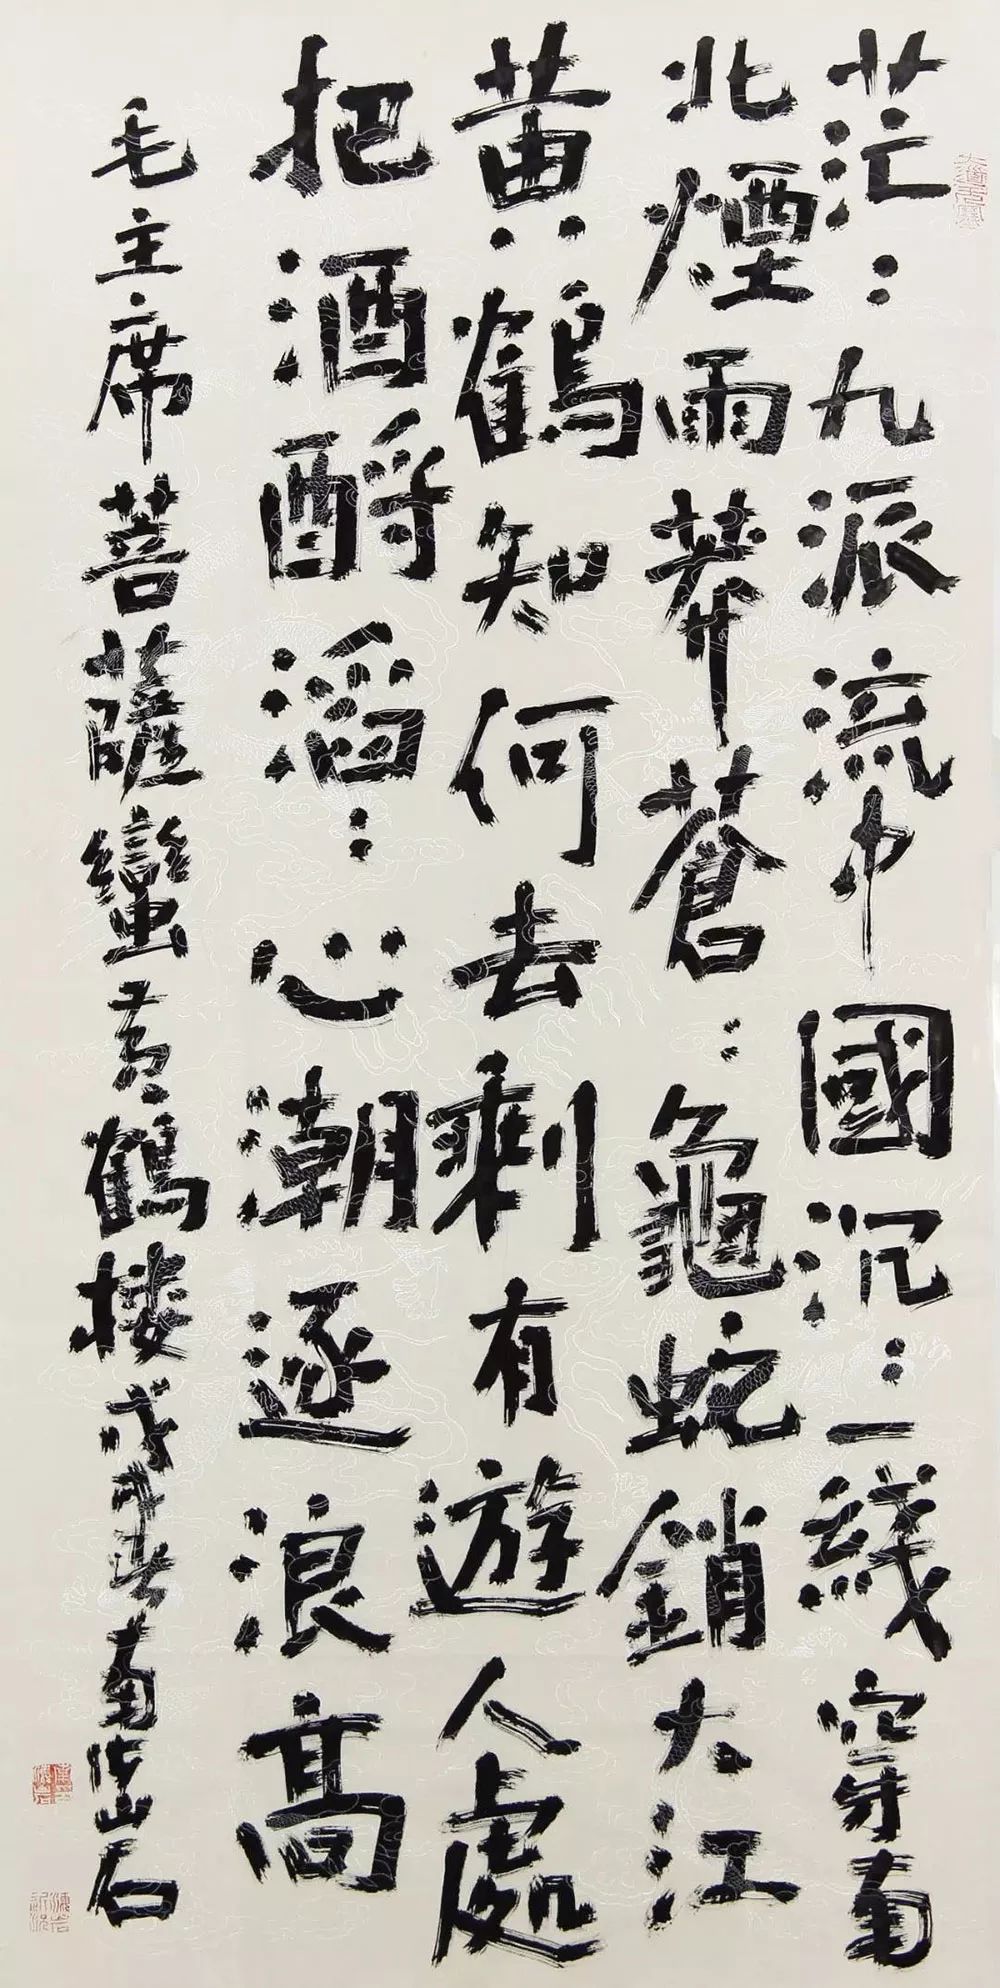 茫：九派流中國沉：一綫穿南
北煙雨莽蒼：龜蛇銷大江
黄鶴知何去剩有遊人處
把酒酹滔：心潮逐浪高
毛主席菩薩蠻黄鶴楼戊戌春南山石